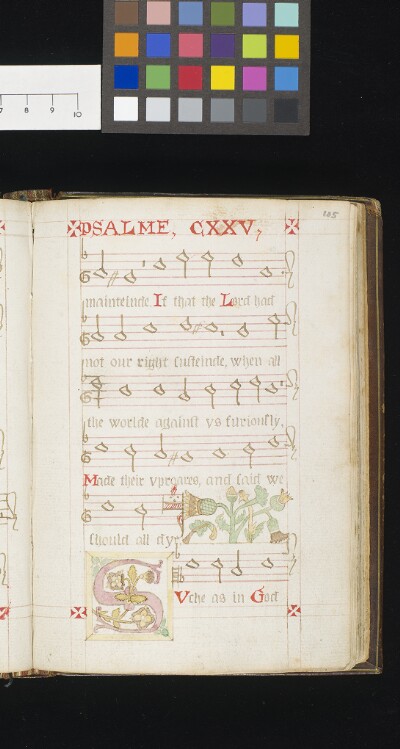 7 8 9 10
105
PSALME, CXXV,
mainteinde. If that the Lord had
not our right susteinde, when all
the worlde against vs furiously,
Made their vproares, and said we
should all dye
SVche as in God